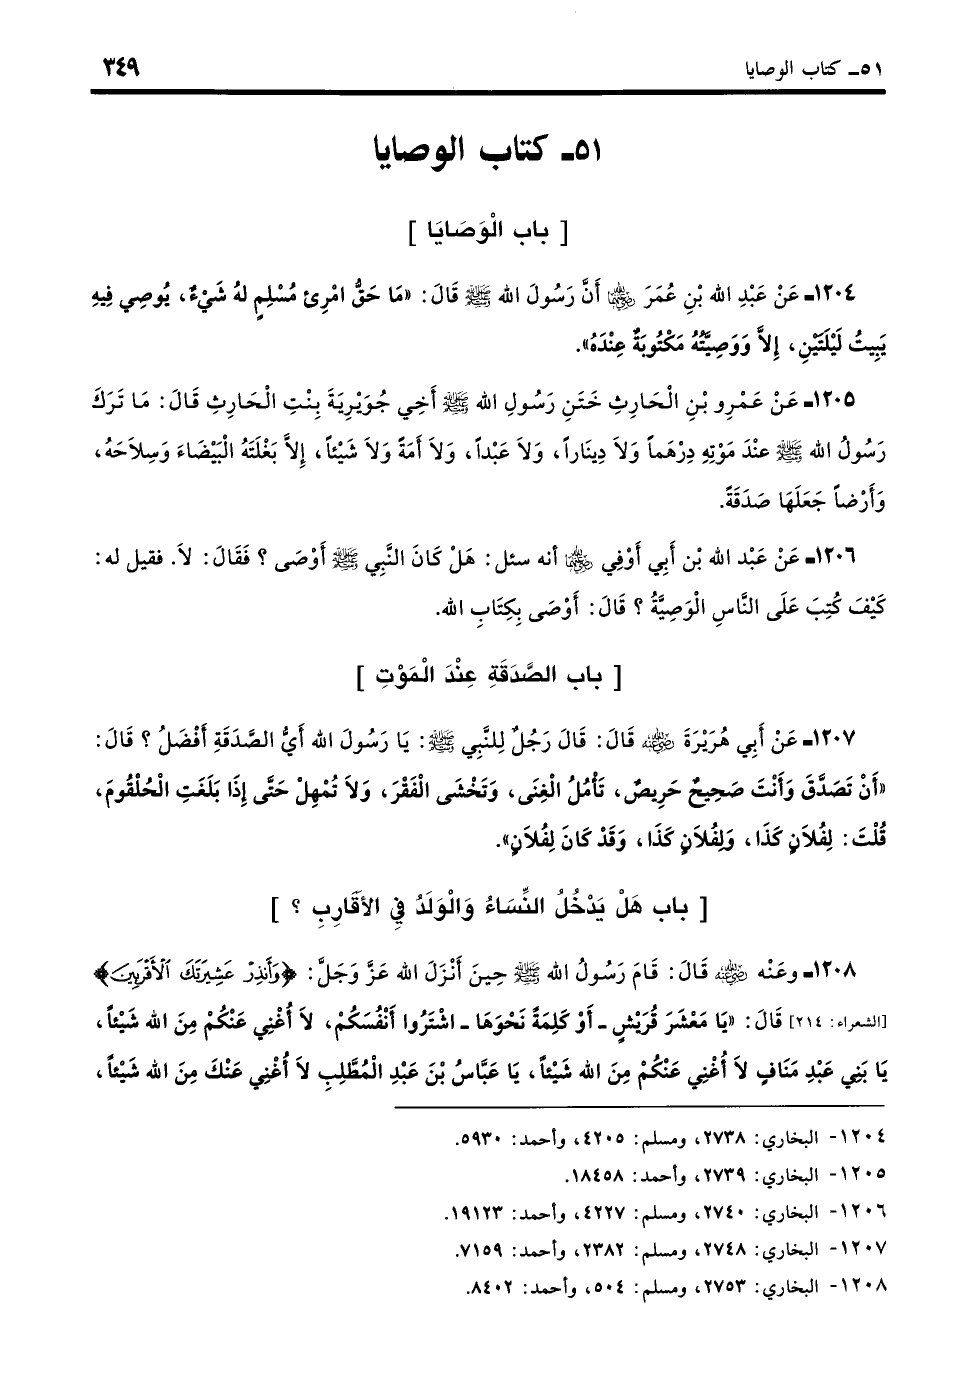 ٥١ـ كتاب الوصايا ٣٤٩
٥١ـ كتاب الوصايا
[ باب الْوَصَايَا ]
١٢٠٤ـ عَنْ عَبْدِ الله بْنِ عُمَرَ رضي الله عنهما أَنَّ رَسُولَ الله ﷺ قَالَ: «مَا حَقُّ امْرِئ مُسْلِمٍ لهُ شَيْءٌ، يُوصِي فِيهِ
يَبِيتُ لَيْلَتَيْنِ، إِلاَّ وَوَصِيَّتُهُ مَكْتُوبَةٌ عِنْدَهُ».
١٢٠٥ـ عَنْ عَمْرِو بْنِ الْحَارِثِ خَتَنِ رَسُولِ الله ﷺ أَخِي جُوَيْرِيَةَ بِنْتِ الْحَارِثِ قَالَ: مَا تَرَكَ
رَسُولُ الله ﷺ عنْدَ مَوْتِهِ دِرْهَماً وَلاَ دِينَاراً، وَلاَ عَبْداً، وَلاَ أَمَةً وَلاَ شَيْئاً، إِلاَّ بَغْلَتَهُ الْبَيْضَاءَ وَسِلاَحَهُ،
وَأَرْضاً جَعَلَهَا صَدَقَةً.
١٢٠٦ـ عَنْ عَبْد الله بْن أَبِي أَوْفِي رضي الله عنهما أنه سئل: هَلْ كَانَ النَّبِي ﷺ أَوْصَى ؟ فَقَالَ: لاَ. فقيل له:
كَيْفَ كُتِبَ عَلَى النَّاسِ الْوَصِيَّةُ ؟ قَالَ: أَوْصَى بِكِتَابِ الله.
[ باب الصَّدَقَةِ عِنْدَ الْمَوْتِ ]
١٢٠٧ـ عَنْ أَبِي هُرَيْرَةَ رضي الله عنه قَالَ: قَالَ رَجُلٌ لِلنَّبِي ﷺ: يَا رَسُولَ الله أَيُّ الصَّدَقَةِ أَفْضَلُ ؟ قَالَ:
«أَنْ تَصَدَّقَ وَأَنْتَ صَحِيحٌ حَرِيصٌ، تَأْمُلُ الْغِنَى، وَتَخْشَى الْفَقْرَ، وَلاَ تُمْهِلْ حَتَّى إِذَا بَلَغَتِ الْحُلْقُومَ،
قُلْتَ: لِفُلاَنٍ كَذَا، وَلِفُلاَنٍ كَذَا، وَقَدْ كَانَ لِفُلاَنٍ».
[ باب هَلْ يَدْخُلُ النِّسَاءُ وَالْوَلَدُ فِي الأَقَارِبِ ؟ ]
١٢٠٨ـ وعَنْه رضي الله عنه قَالَ: قَامَ رَسُولُ الله ﷺ حِينَ أَنْزَلَ الله عَزَّ وَجَلَّ: ﴿وَأَنذِرْ عَشِيرَتَكَ ٱلْأَقْرَبِينَ﴾
[الشعراء: ٢١٤] قَالَ: «يَا مَعْشَرَ قُرَيْشٍ ـ أَوْ كَلِمَةً نَحْوَهَا ـ اشْتَرُوا أَنْفُسَكُمْ، لاَ أُغْنِي عَنْكُمْ مِنَ الله شَيْئاً،
يَا بَنِي عَبْدِ مَنَافٍ لاَ أُغْنِي عَنْكُمْ مِنَ الله شَيْئاً، يَا عَبَّاسُ بْنَ عَبْدِ الْمُطَّلِبِ لاَ أُغْنِي عَنْكَ مِنَ الله شَيْئاً،
١٢٠٤- البخاري: ٢٧٣٨، ومسلم: ٤٢٠٥، وأحمد: ٥٩٣٠.
١٢٠٥- البخاري: ٢٧٣٩، وأحمد: ١٨٤٥٨.
١٢٠٦- البخاري: ٢٧٤٠، ومسلم: ٤٢٢٧، وأحمد: ١٩١٢٣.
١٢٠٧- البخاري: ٢٧٤٨، ومسلم: ٢٣٨٢، وأحمد: ٧١٥٩.
١٢٠٨- البخاري: ٢٧٥٣، ومسلم: ٥٠٤، وأحمد: ٨٤٠٢.